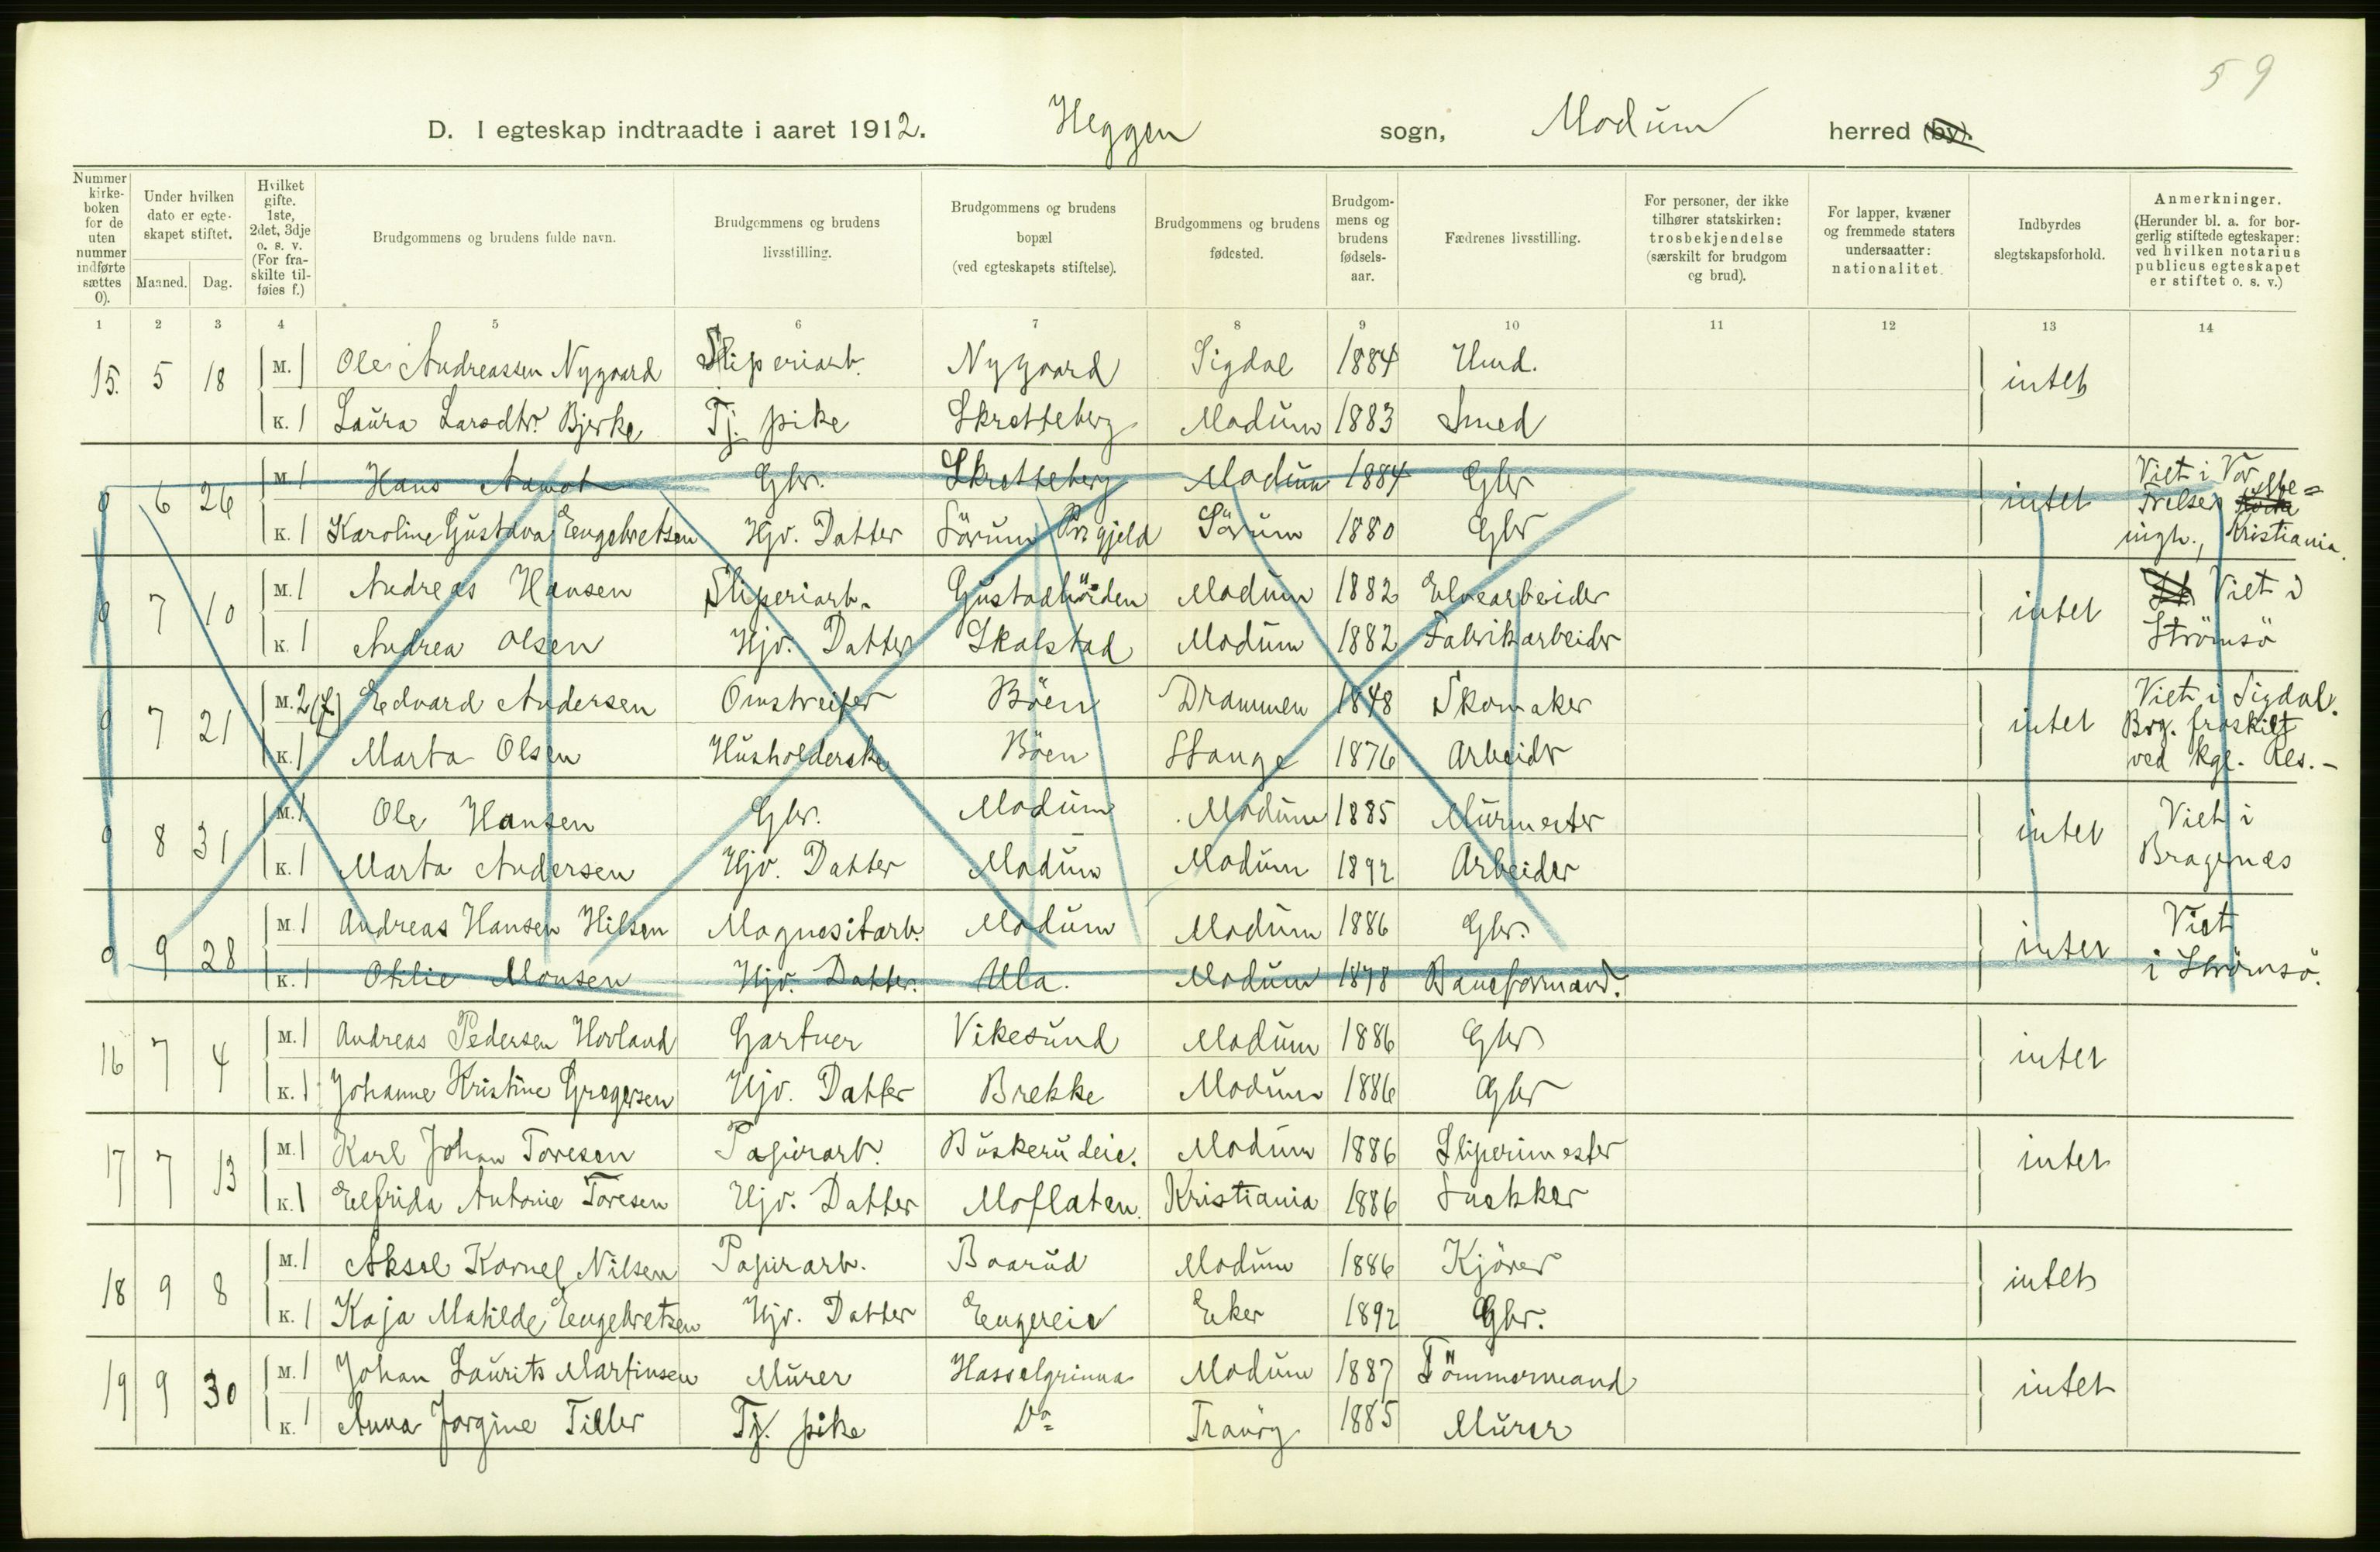 59
D. I egteskap indtraadte i aaret 1912. Heggen sogn, Modum herred (by).
Nummer kirkeboken for de uten nummer indførte sættes 0).
Under hvilken dato er egteskapet stiftet.
Maaned. Dag.
Hvilket gifte. 1ste, 2det, 3dje o. s. v. (For fraskilte tilføies f.)
Brudgommens og brudens fulde navn.
Brudgommens og brudens livsstilling.
Brudgommens og brudens bopæl (ved egteskapets stiftelse).
Brudgommens og brudens fødested.
Brudgommens og brudens fødselsaar.
Fædrenes livsstilling.
For personer, der ikke tilhører statskirken: trosbekjendelse (særskilt for brudgom og brud).
For lapper, kvæner og fremmede staters undersaatter: nationalitet.
Indbyrdes slegtskapsforhold.
Anmerkninger. (Herunder bl. a. for borgerlig stiftede egteskaper: ved hvilken notarius publicus egteskapet er stiftet o. s. v.)
1 2 3 4 5 6 7 8 9 10 11 12 13 14
15. 5 18 M. 1 Ole Andreassen Nygaard Sliperiarb. Nygaard Sigdal 1884 Hmd. intet
K. 1 Laura Larsdtr. Bjerke Tj. pike Skretteberg Modum 1883 Smed
0 6 26 M 1 Hans Aamot Gbr. Skretteberg Modum 1884 Gbr intet Viet i Vor Frelsers ingh., Kristiania.
K. 1 Karoline Gustava Engebretsen Hjv. Datter Sörum Prgjeld Sörum 1880 Gbr
0 7 10 M. 1 Andreas Hansen Sliperiarb. Gustadhörden Modum 1882 Elvearbeider intet Viet i Strömsö
K. 1 Andrea Olsen Hjv. Datter Skalstad Modum 1882 Fabrikarbeider
0 7 21 M. 2 (f) Edvard Andersen Omstreifer Böen Drammen 1848 Skomaker intet Viet i Sigdal. Brg. fraskilt ved kgl. Res. -
K. 1 Marta Olsen Husholderske Böen Stange 1876 Arbeidr
0 8 31 M. 1 Ole Hansen Gbr. Modum Modum 1885 Murmester intet Viet i Bragenæs
K. 1 Marta Andersen Hjv. Datter Modum Modum 1892 Arbeider
0 9 28 M. 1 Andreas Hansen Hilsen Magnesitarb. Modum Modum 1886 Gbr. intet Viet i Strömsö.
K. 1 Otilie Monsen Hjv. Datter. Ula. Modum 1878 Baneformand.
16 7 4 M. 1 Andreas Pedersen Hovland Gartner Vikesund Modum 1886 Gbr intet
K. 1 Johanne Kristine Gregersen Hjv. Datter Brekke Modum 1886 Gbr
17 7 13 M. 1 Karl Johan Toresen Papirarb. Buskerudeie. Modum 1886 Sliperimester intet
K. 1 Elfrida Antonie Toresen Hjv. Datter Moflaten. Kristiania 1886 Snekker
18 9 8 M. 1 Aksel Kornel Nilsen Papirarb. Baarud Modum 1886 Kjörer intet
K. 1 Kaja Matilde Engebretsen Hjv. Datter Engereie Eker 1892 Gbr.
19 9 30 M. 1 Johan Laurits Martinsen Murer Hasselgrinna Modum 1887 Tömmermand intet
K. 1 Anna Jorgine Tiller Tj. pike Do Tranby 1885 Murer